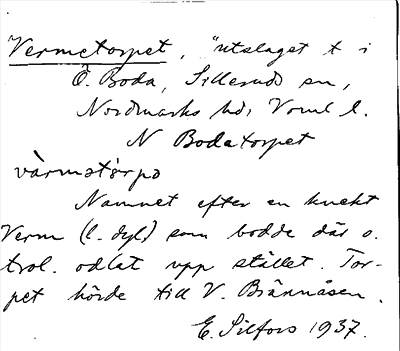 Vermetorpet, "utslaget t i
Ö. Boda, Silleruds sn,
Nordmarks hd, Vrml l.
N Bodatorpet
värmatòrpə
Namnet efter en knekt
Verm (l. dyl) som bodde där o.
trol. odlat upp stället. Tor-
pet hörde till V. Brännåsen.
E. Silfors 1937.